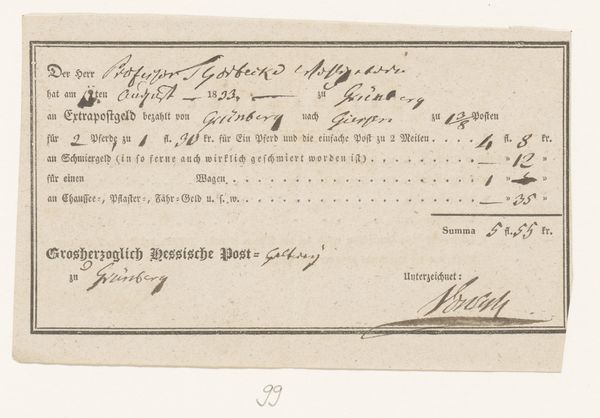 Der Herr Professor
hat am 12ten August 1833. zu Grünberg
an Extrapostgeld bezahlt von Grünberg nach Giessen zu 1 3/8 Posten
für 2 Pferde zu 1 fl. 30 kr. für Ein Pferd und die einfache Post zu 2 Meilen . . . . 4 fl. 8 kr.
an Schmiergeld (in so ferne auch wirklich geschmiert worden ist) . . . . . . . . . . . — » 12 »
für einen Wagen . . . . . . . . . . . . . . . . . . . . . . . 1 » »
an Chaussee-, Pflaster-, Fähr-Geld u. s. w. . . . . . . . . . . . . . . . . . . . — » 35 »
Summa 5 fl. 55 kr.
Grosherzoglich Hessische Post-
zu Grünberg
Unterzeichnet:
99